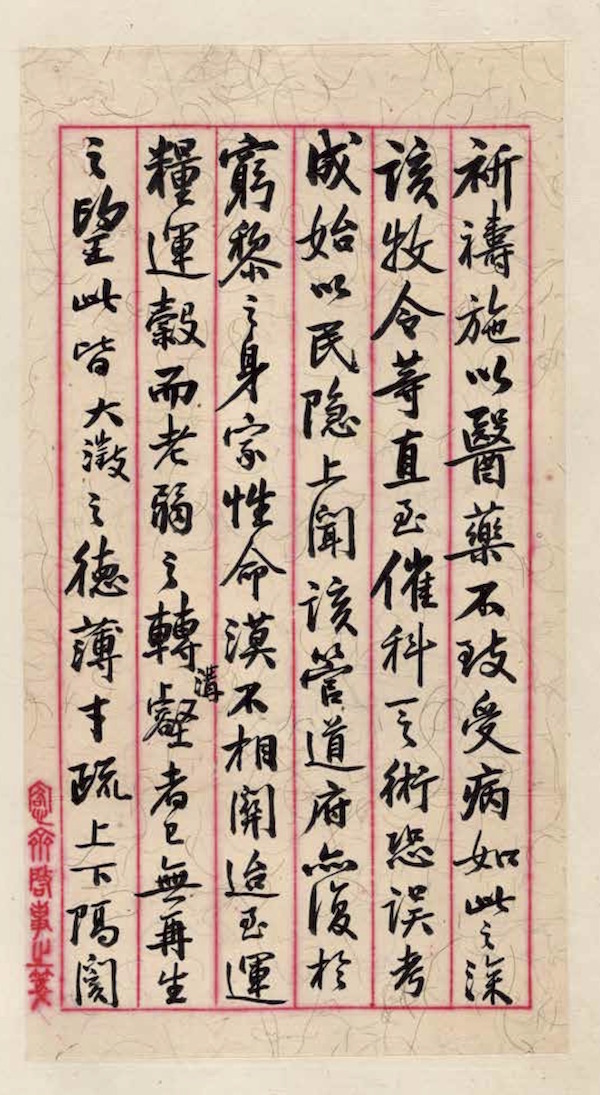 祈禱施以醫藥不致受病如此之深
該牧令等直至催科乏術恐誤考
成始以民隱上聞該管道府亦復於
窮黎之身家性命漠不相關迨至運
糧運穀而老弱之轉溝壑者已無再生
之望此皆大澂之德薄才疏上下隔閡
愙齋啓事之箋